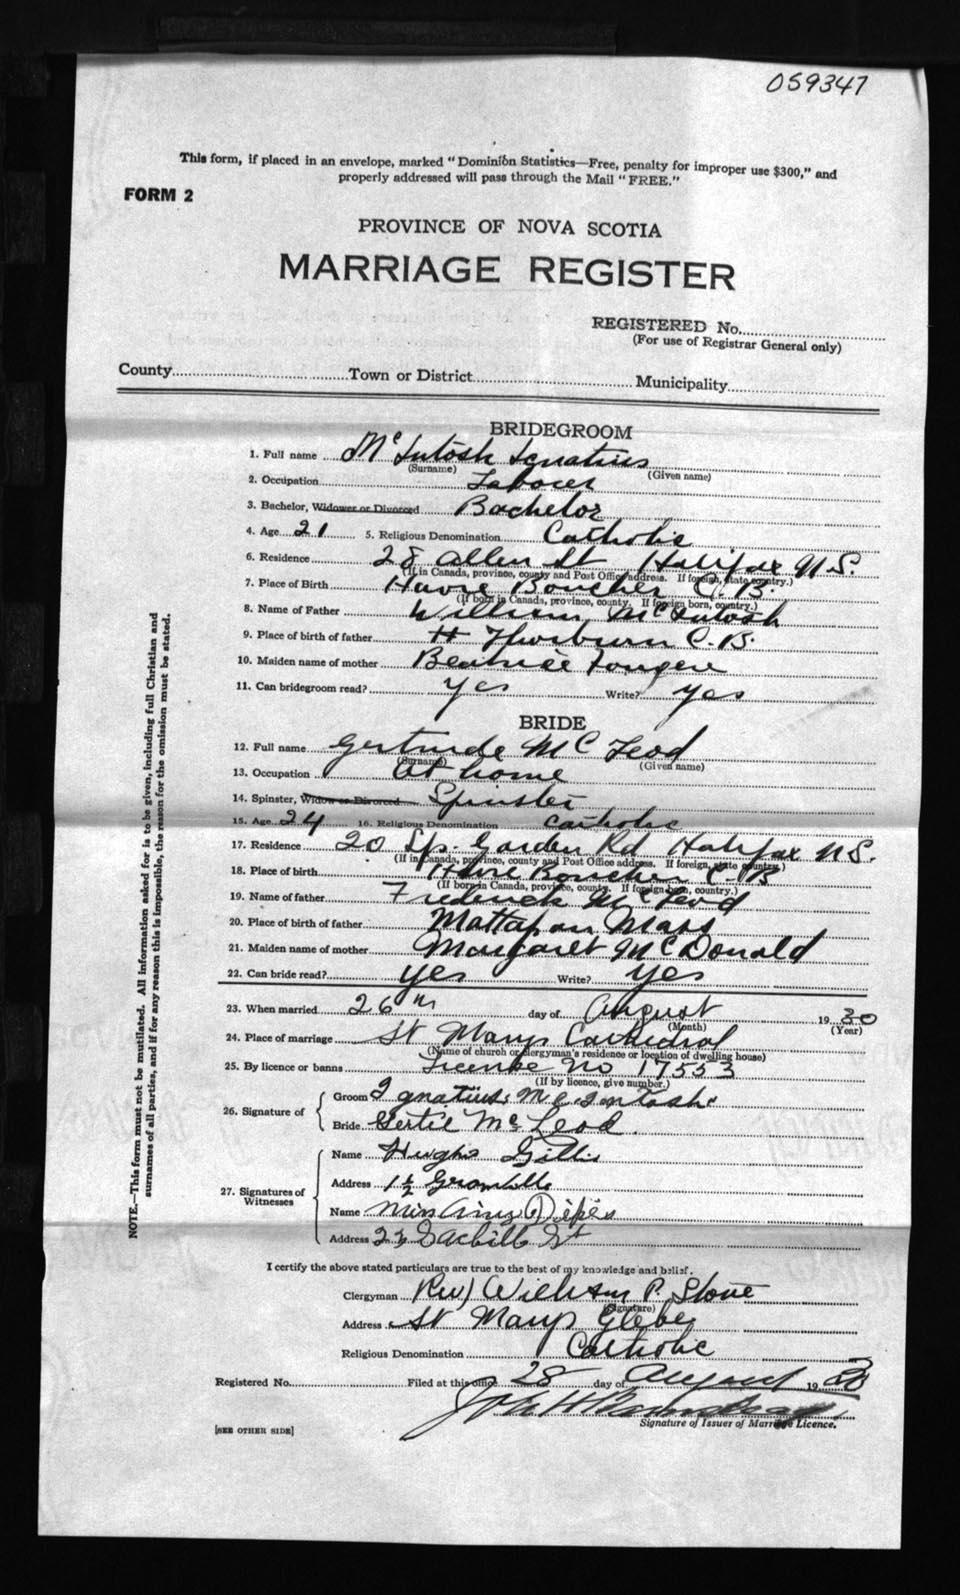 059347
This form, if placed in an envelope, marked "Dominion Statistics—Free, penalty for improper use $300," and
properly addressed will pass through the Mail "FREE."
FORM 2
PROVINCE OF NOVA SCOTIA
MARRIAGE REGISTER
REGISTERED No.
(For use of Registrar General only)
County Town or District Municipality
BRIDEGROOM
1. Full name McIntosh Ignatius
(Surname) (Given name)
2. Occupation Laborer
3. Bachelor, Widower or Divorced Bachelor
4. Age 21 5. Religious Denomination Catholic
6. Residence 28 Allen St Halifax N.S.
(If in Canada, province, county and Post Office address. If foreign, state country.)
7. Place of Birth Havre Boucher C.B.
(If born in Canada, province, county. If foreign born, country.)
8. Name of Father William McIntosh
9. Place of birth of father Thorburn C.B.
10. Maiden name of mother Beatrice Fougere
11. Can bridegroom read? yes Write? yes
BRIDE
12. Full name Gertrude McLeod
(Surname) (Given name)
13. Occupation At home
14. Spinster, Widow or Divorced Spinster
15. Age 24 16. Religious Denomination Catholic
17. Residence 20 Sp. Garden Rd Halifax N.S.
(If in Canada, province, county and Post Office address. If foreign, state country.)
18. Place of birth Havre Boucher C.B
(If born in Canada, province, county. If foreign born, country.)
19. Name of father Frederick McLeod
20. Place of birth of father Mattapan Mass
21. Maiden name of mother Margaret McDonald
22. Can bride read? yes Write? yes
23. When married 26th day of August 1930
(Month) (Year)
24. Place of marriage St Marys Cathedral
(Name of church or clergyman's residence or location of dwelling house)
25. By licence or banns License No 17553
(If by licence, give number.)
26. Signature of
Groom Ignatius McIntosh
Bride Gertie McLeod
27. Signatures of Witnesses
Name Hugh Gillis
Address 1½ Granville
Name Miss
Address 23 Sackville St
I certify the above stated particulars are true to the best of my knowledge and belief.
Clergyman Rev) William P. Stone
(Signature)
Address St Marys Glebe
Religious Denomination Catholic
Registered No. Filed at this office 28 day of August 1930
Signature of Issuer of Marriage Licence.
[SEE OTHER SIDE]
NOTE.—This form must not be mutilated. All information asked for is to be given, including full Christian and
surnames of all parties, and if for any reason this is impossible, the reason for the omission must be stated.